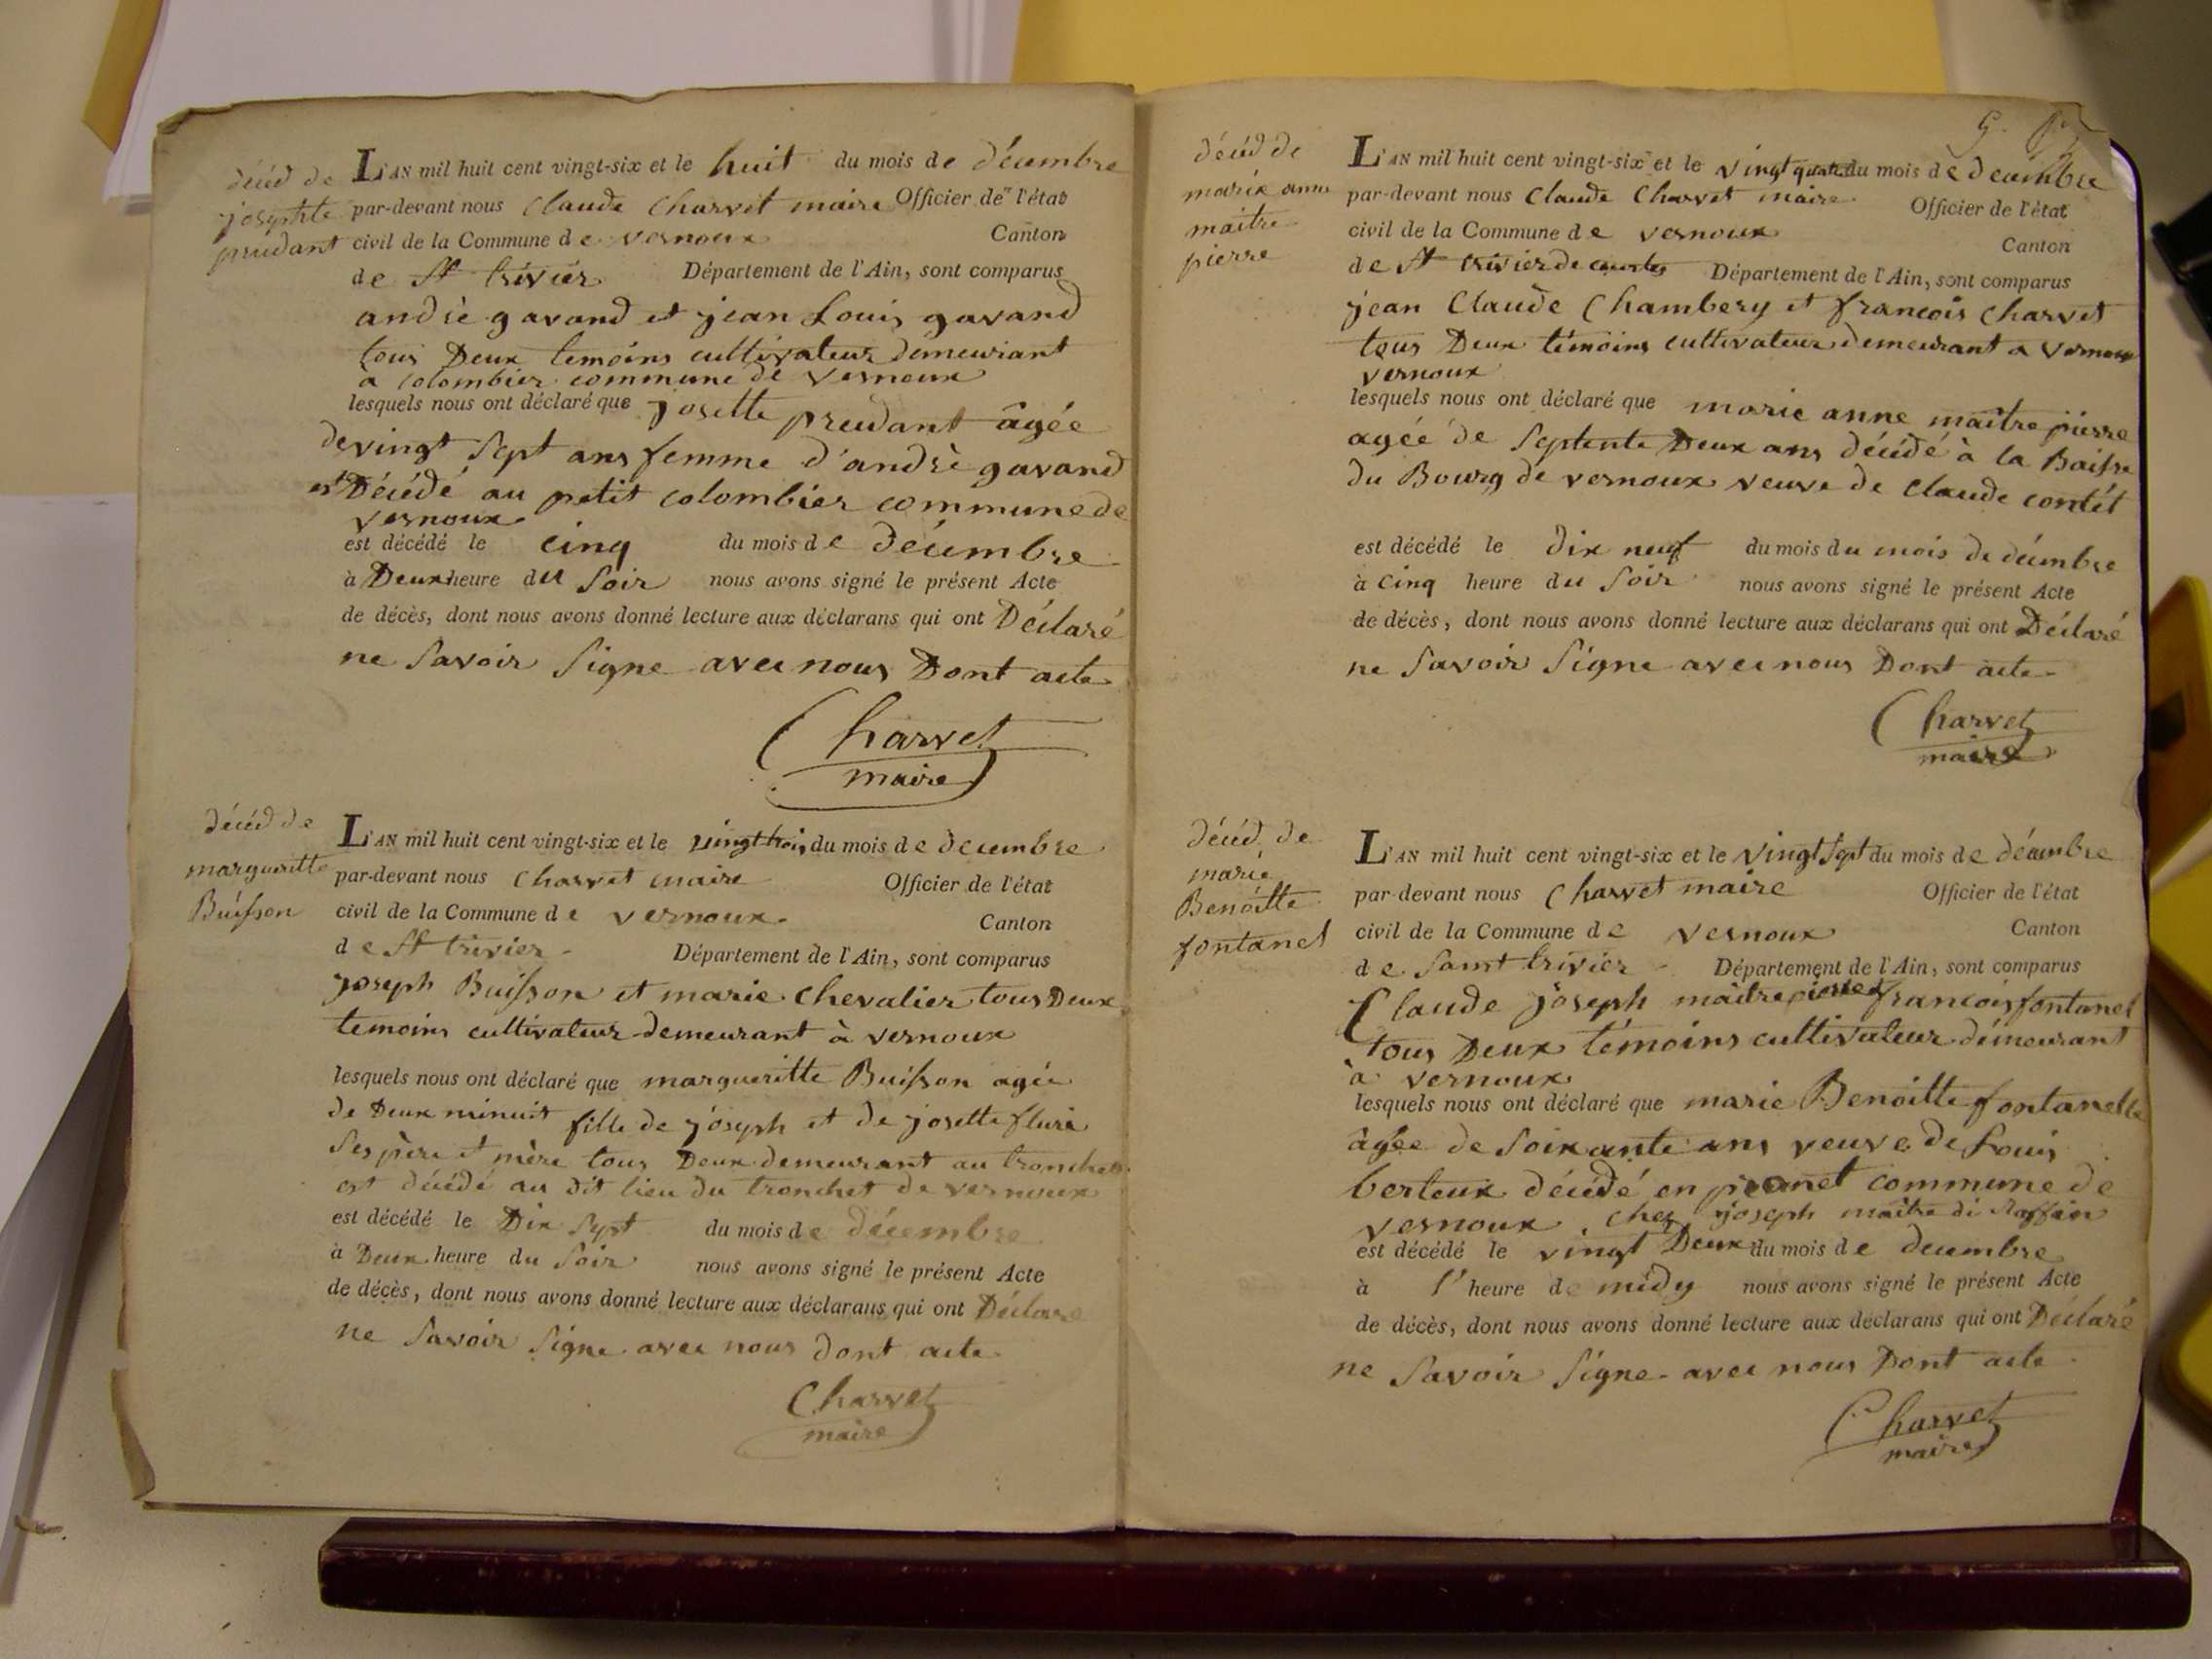 décéd de
josephte
prudant
L'AN mil huit cent vingt-six et le huit du mois de décembre
par-devant nous Claude Charvet maire Officier de l'état
civil de la Commune de vernoux Canton
de St trivier Département de l'Ain, sont comparus
andrè gavand et jean Louis gavand
tous Deux temoins cultivateur demeurant
a colombier commune de vernoux
lesquels nous ont déclaré que josette prudant âgée
de vingt sept ans femme d'andrè gavand
est Décédé au petit colombier commune de
vernoux
est décédé le cinq du mois de décembre
à Deux heure du soir nous avons signé le présent Acte
de décès, dont nous avons donné lecture aux déclarans qui ont Déclaré
ne savoir signe avec nous Dont acte
Charvet
maire
décéd de
margueritte
Buisson
L'AN mil huit cent vingt-six et le vingt trois du mois de decembre
par-devant nous Charvet maire Officier de l'état
civil de la Commune de vernoux Canton
de St trivier Département de l'Ain, sont comparus
joseph Buisson et marie chevalier tous Deux
temoins cultivateur demeurant à vernoux
lesquels nous ont déclaré que margueritte Buisson agée
de Deux minuit fille de joseph et de josette
ses père et mère tous Deux demeurant au tronchet
est décédé au dit lieu du tronchet de vernoux
est décédé le Dix sept du mois de décembre
à Deux heure du soir nous avons signé le présent Acte
de décès, dont nous avons donné lecture aux déclarans qui ont Déclaré
ne savoir signe avec nous dont acte
Charvet
maire
décéd de
marie anne
maitre
pierre
L'AN mil huit cent vingt-six et le vingt quatre du mois de décembre
par-devant nous Claude Charvet maire Officier de l'état
civil de la Commune de vernoux Canton
de St trivier de courtes Département de l'Ain, sont comparus
jean Claude Chambery et francois Charvet
tous Deux témoins cultivateur demeurant a vernoux
vernoux
lesquels nous ont déclaré que marie anne maître pierre
agée de septente Deux ans décédé à la Baisse
du Bourg de vernoux veuve de claude contét
est décédé le dix neuf du mois du mois de décembre
à cinq heure du soir nous avons signé le présent Acte
de décès, dont nous avons donné lecture aux déclarans qui ont Déclaré
ne savoir signe avec nous Dont acte
Charvet
maire
décéd de
marie
Benoitte
fontanel
L'AN mil huit cent vingt-six et le vingt sept du mois de décembre
par-devant nous Charvet maire Officier de l'état
civil de la Commune de vernoux Canton
de saint trivier Département de l'Ain, sont comparus
Claude joseph maitre pierre francois fontanel
tous Deux témoins cultivateur démeurant
à vernoux
lesquels nous ont déclaré que marie Benoitte fontanelle
âgée de soixante ans veuve de Louis
berteux décédé en commune de
vernoux chez joseph maître
est décédé le vingt Deux du mois de decembre
à l'heure de midy nous avons signé le présent Acte
de décès, dont nous avons donné lecture aux déclarans qui ont Déclaré
ne savoir signe avec nous Dont acte
Charvet
maire